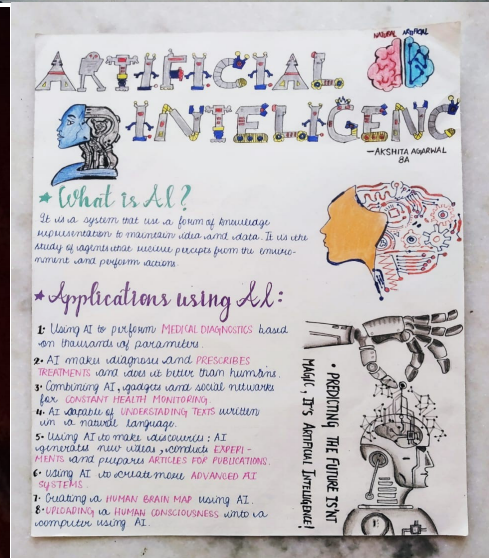 ARTIFICIAL
NATURAL ARTIFICIAL
INTELLIGENC
-AKSHITA AGARWAL
8A
★ What is A.I.?
It is a system that use a form of knowledge
representation to maintain idea and data. It is the
study of agents that receive percepts from the enviro-
nment and perform actions.
★ Applications using A.I.:
1· Using AI to perform MEDICAL DIAGNOSTICS based
on thousands of parameters.
2· AI makes diagnoses and PRESCRIBES
TREATMENTS and does it better than humans.
3· Combining AI, gadgets and social networks
for CONSTANT HEALTH MONITORING.
4· AI capable of UNDERSTADING TEXTS written
in a natural language.
5· Using AI to make discoveries: AI
generates new ideas, conducts EXPERI-
MENTS and prepares ARTICLES FOR PUBLICATIONS.
6· Using AI to create more ADVANCED AI
SYSTEMS.
7· Creating a HUMAN BRAIN MAP using AI.
8· UPLOADING a HUMAN CONSCIOUSNESS into a
computer using AI.
• PREDICTING THE FUTURE ISN'T
MAGIC, IT'S ARTIFICIAL INTELLIGENCE!